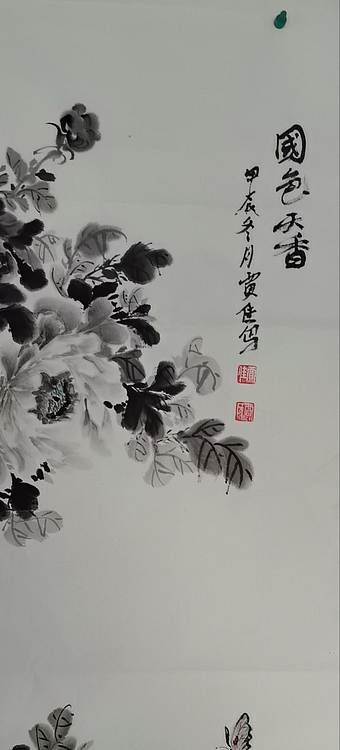 國色天香
甲辰冬月賓佳寫